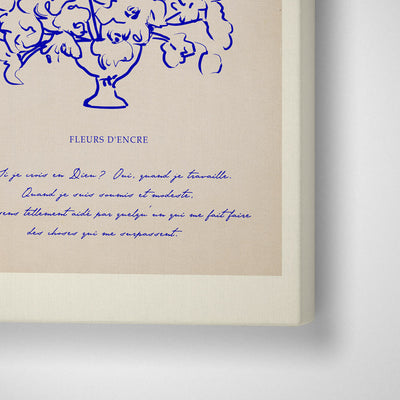 FLEURS D'ENCRE
Si je crois en Dieu? Oui, quand je travaille.
Quand je suis soumis et modeste.
sens tellement aidé par quelqu'un qui me fait faire
des choses qui me surpassent.